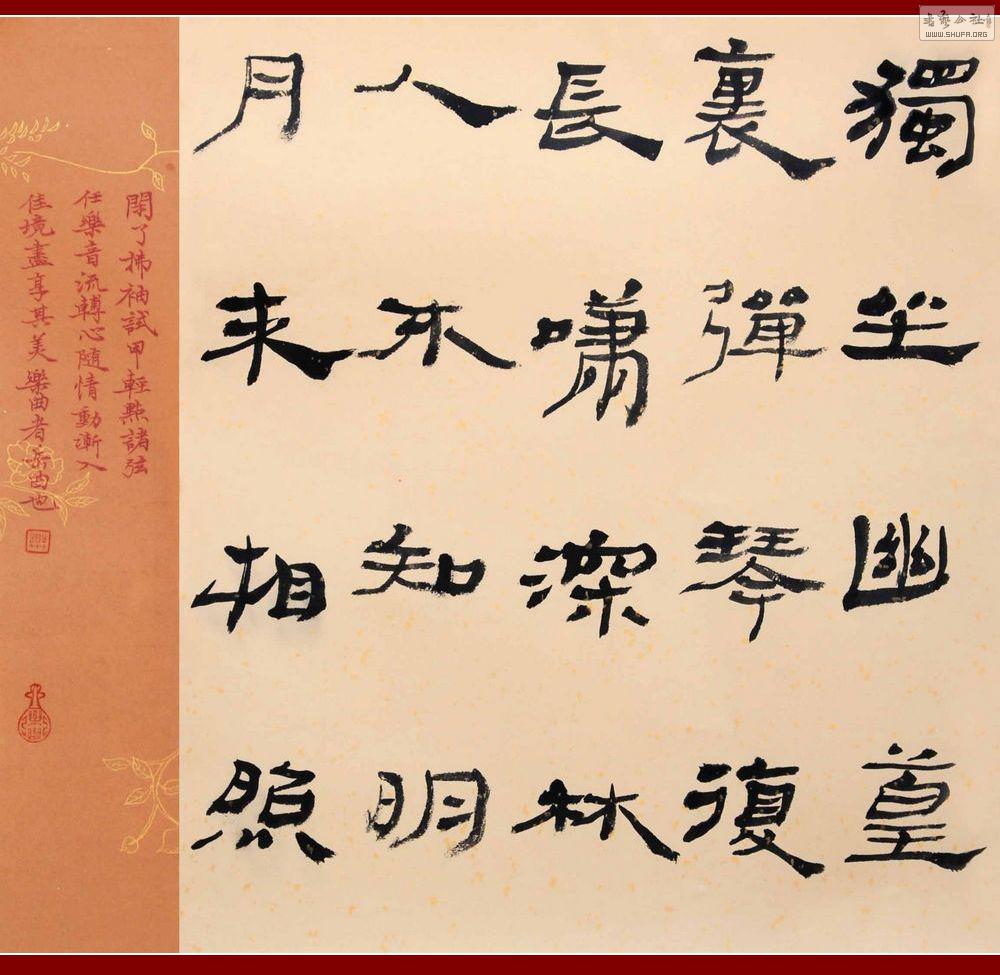 獨坐幽篁
裏彈琴復
長嘯深林
人不知明
月来相照
閑了拂袖試甲輕點諸弦
任樂音流轉心隨情動漸入
佳境盡享其美樂曲者曲也
書藝公社
WWW.SHUFA.ORG